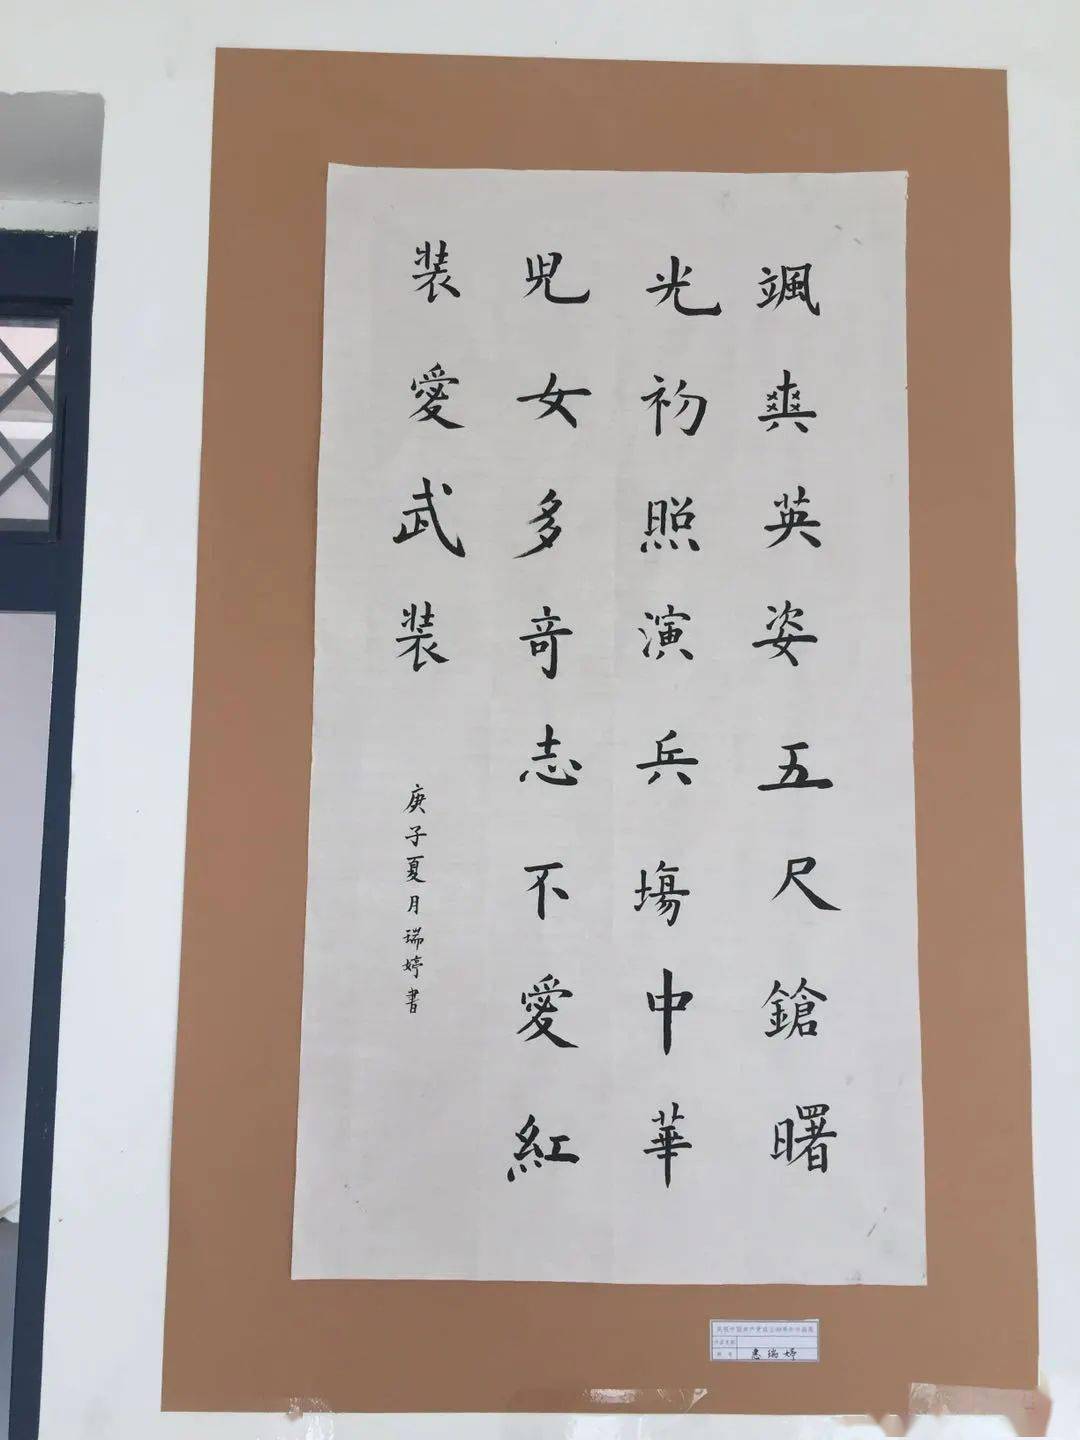 颯爽英姿五尺鎗曙
光初照演兵塲中華
兒女多奇志不愛紅
装愛武装
庚子夏月瑞婷書
惠瑞婷